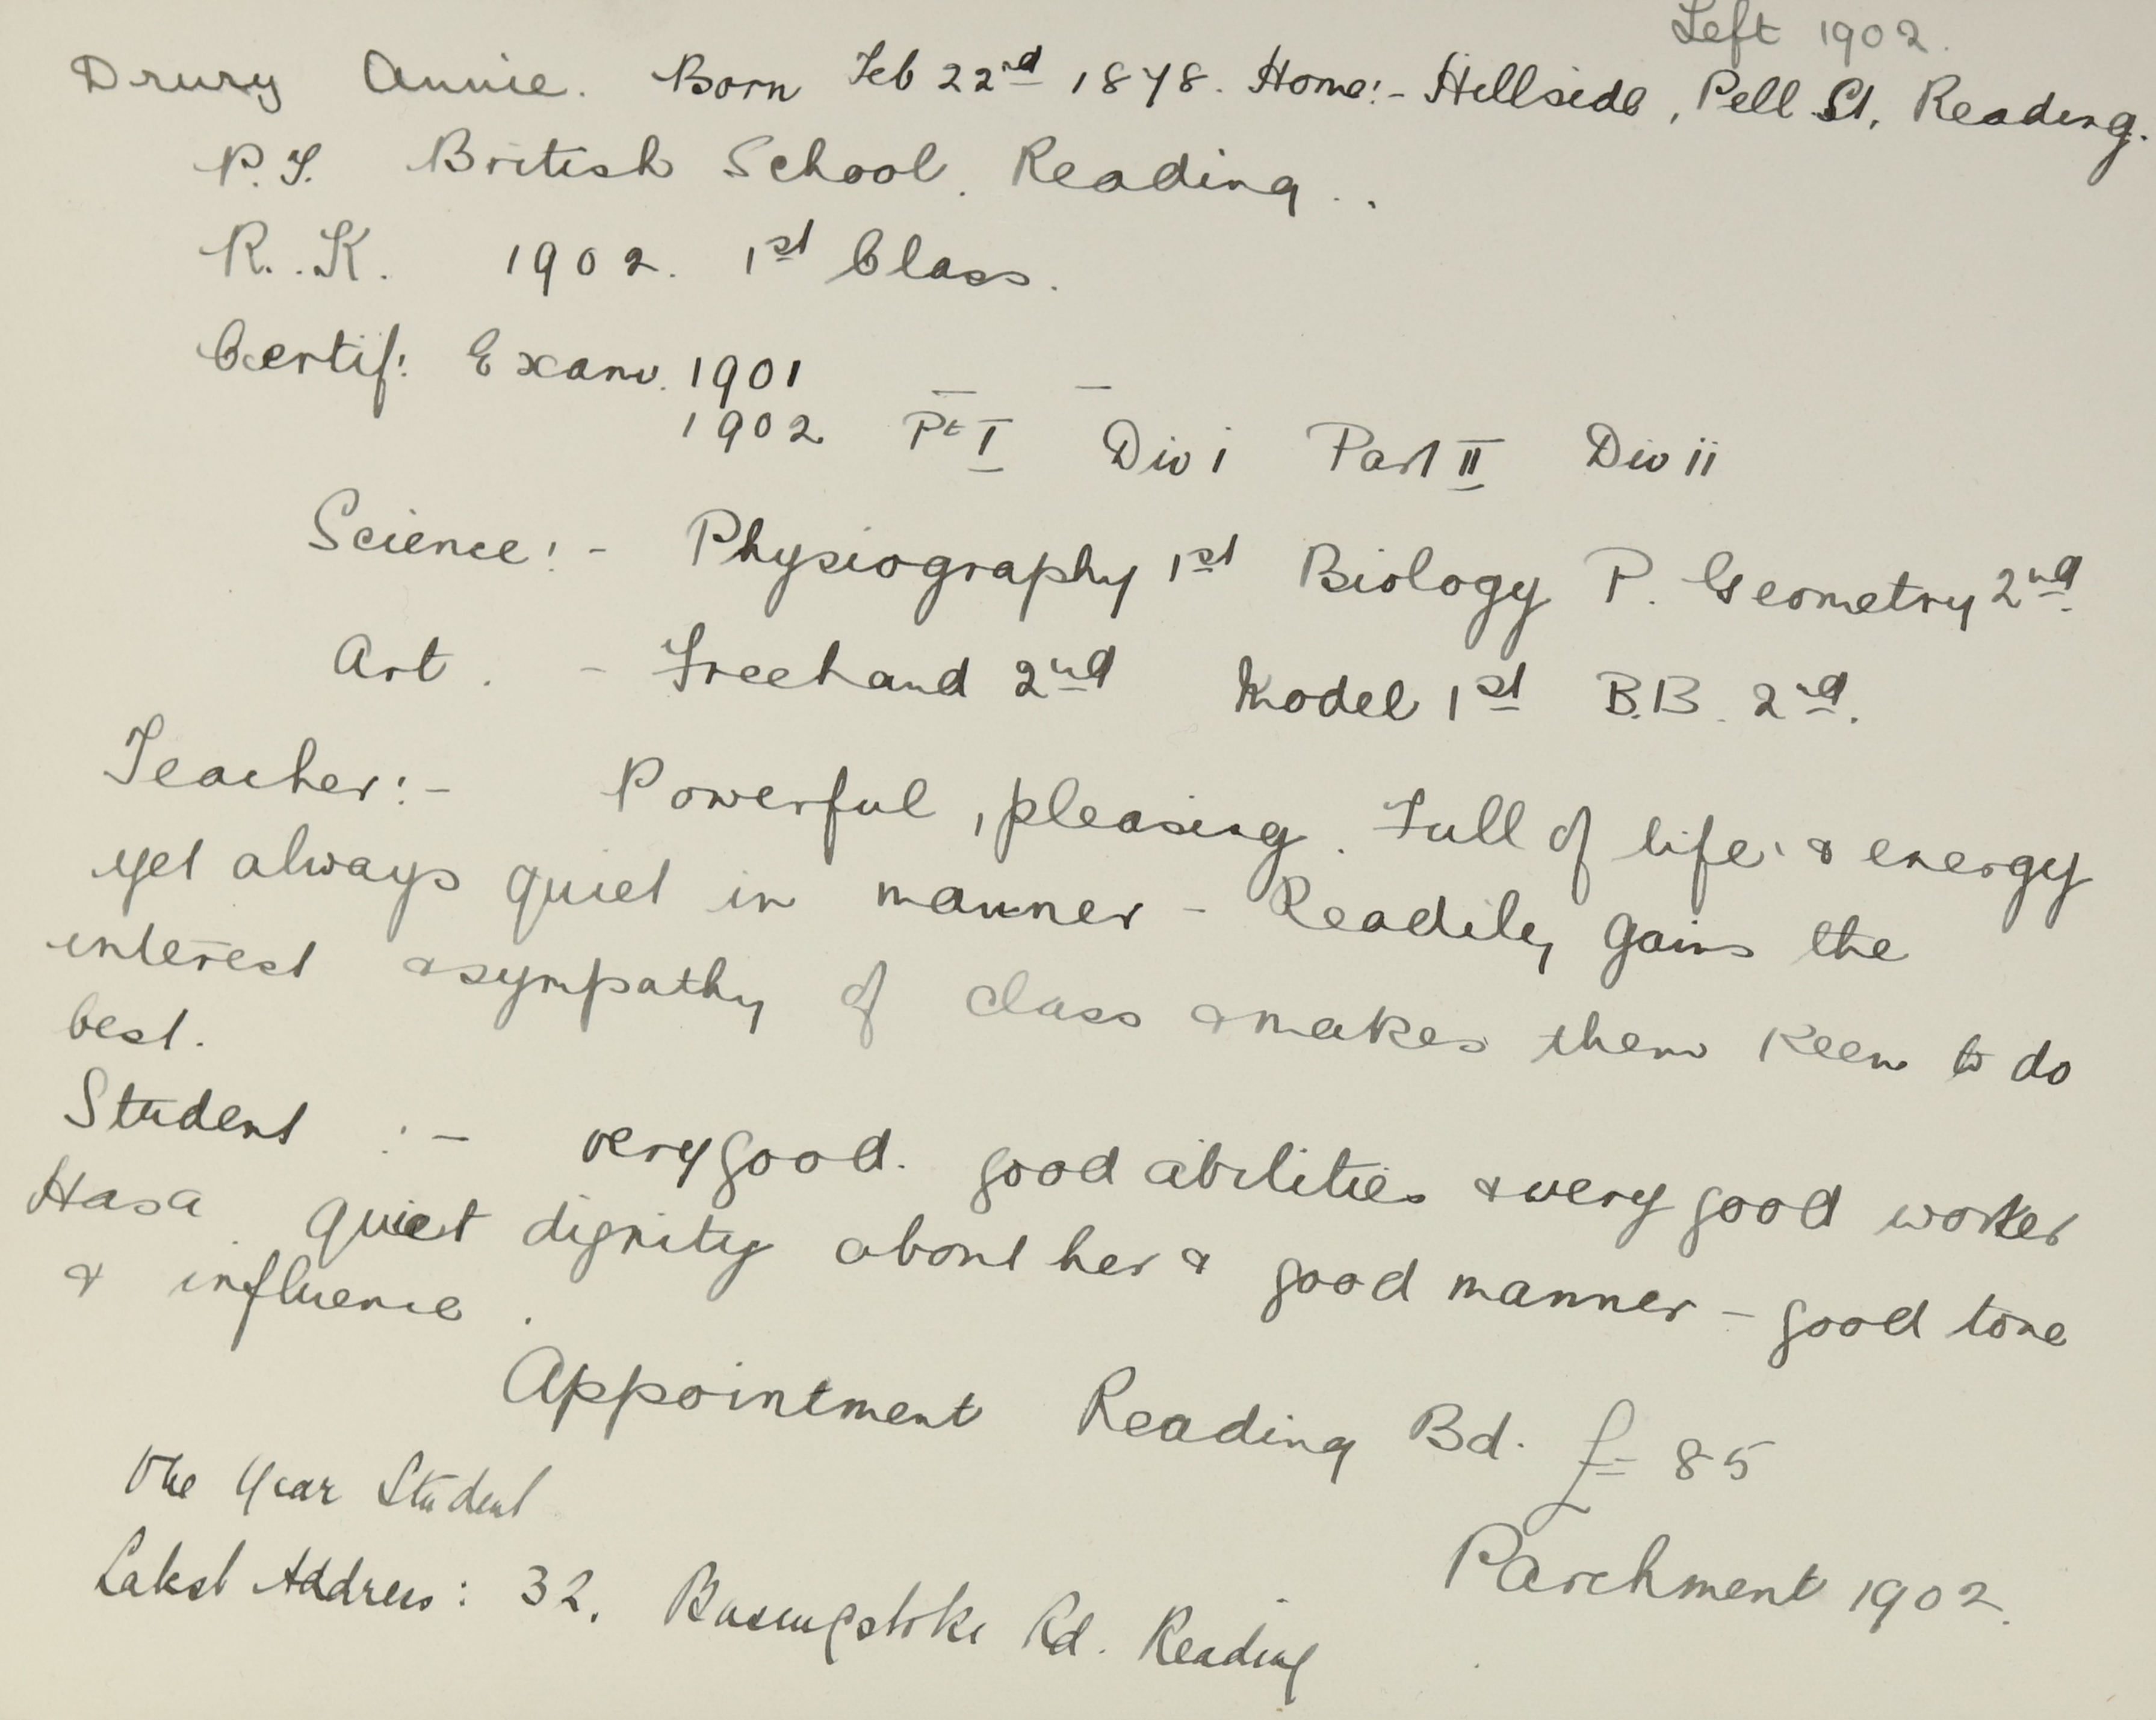 Left 1902.
Drury Annie. Born Feb 22nd 1878. Home:- Hillside, Pell St, Reading.
P.T. British School. Reading..
R.K. 1902. 1st Class.
Certif: Exam. 1901
1902 Pt I Div i Part II Div ii
Science:- Physiography 1st Biology P. Geometry 2nd.
Art. - Freehand 2nd Model 1st B.B. 2nd.
Teacher:- Powerful, pleasing. Full of life & energy
yet always quiet in manner - Readily gains the
interest & sympathy of class & makes them keen to do
best.
Student :- very good. good abilities & very good worker
Has a quiet dignity about her & good manner - good tone
& influence.
Appointment Reading Bd. £85
One Year Student
Parchment 1902.
Latest Address: 32. Basingstoke Rd. Reading